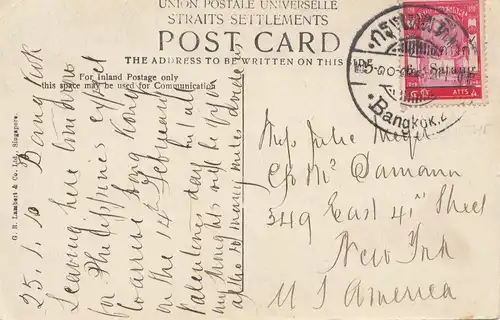 UNION POSTALE UNIVERSELLE
STRAITS SETTLEMENTS
POST CARD
THE ADDRESS TO BE WRITTEN ON THIS SIDE
For Inland Postage only
this space may be used for Communication
G. R. Lambert & Co., Ltd., Singapore.
25.1.10 Bangkok
Leaving here tomorrow
for Philippines expect
to arrive Hong Kong
on the 14 February
Valentines day
my thoughts will be
altho so many miles divide us
Satang
ATTS
Bangkok.2
Miss Julie
C/o Mc Damann
349 East 41st Street
New York
U S America